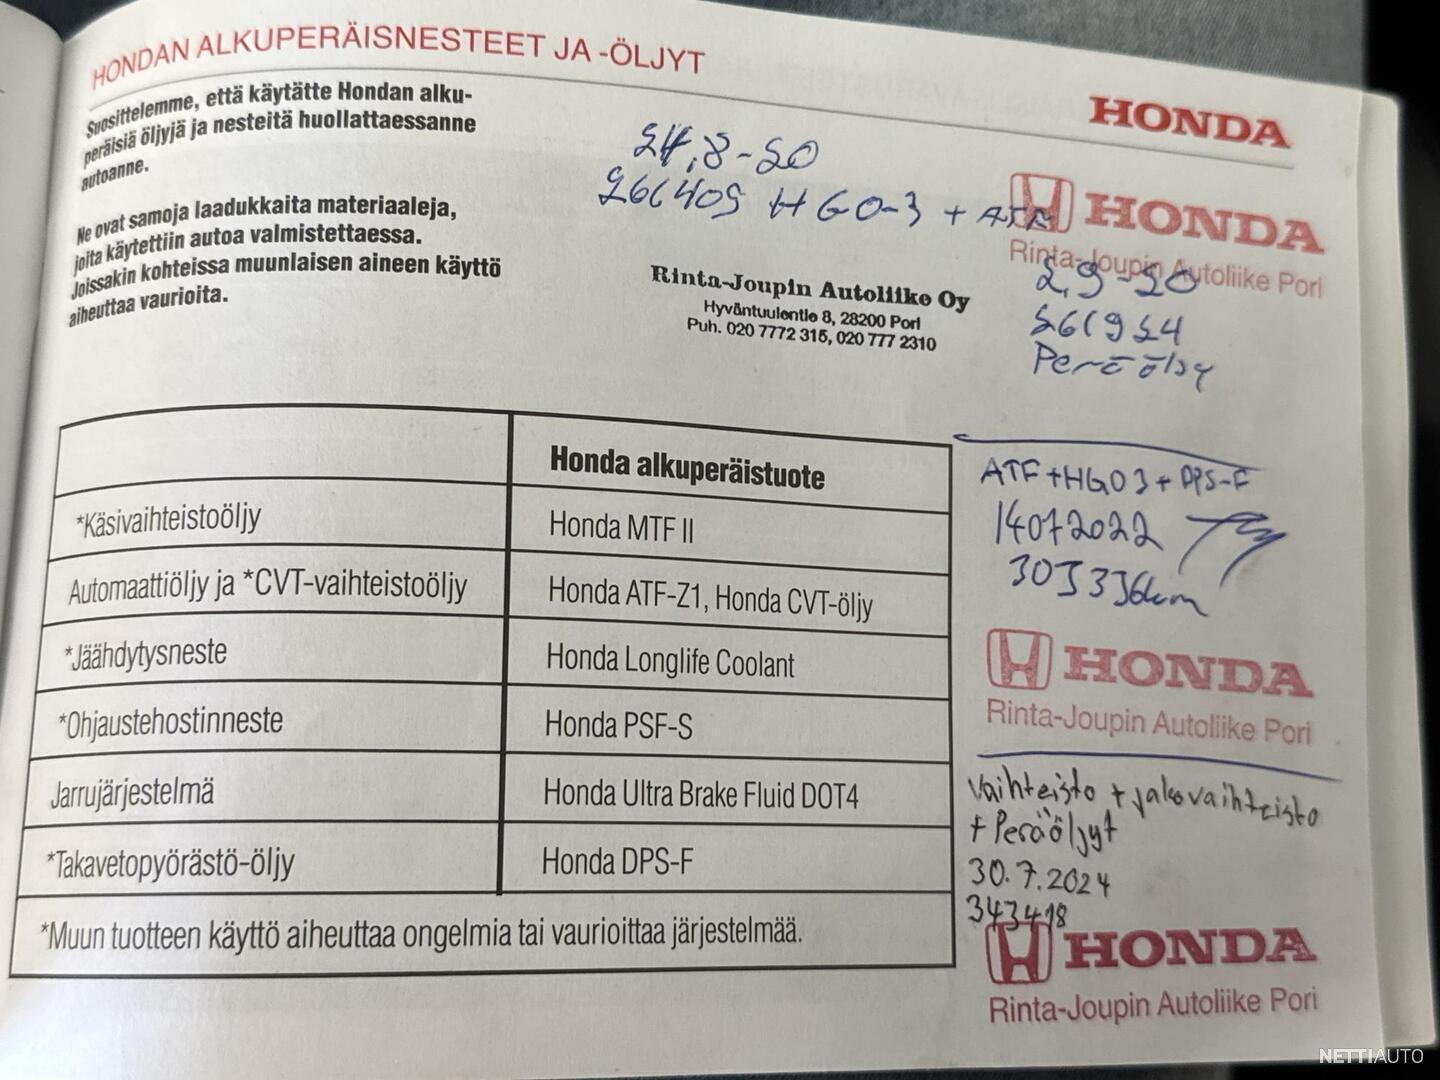 HONDAN ALKUPERÄISNESTEET JA -ÖLJYT
HONDA
Suosittelemme, että käytätte Hondan alku-
peräisiä öljyjä ja nesteitä huollattaessanne
autoanne.
Ne ovat samoja laadukkaita materiaaleja,
joita käytettiin autoa valmistettaessa.
Joissakin kohteissa muunlaisen aineen käyttö
aiheuttaa vaurioita.
24.8-20
HGO-3 + ATF
HONDA
Rinta-Joupin Autoliike Pori
Rinta-Joupin Autoliike Oy
Hyväntuulentie 8, 28200 Pori
Puh. 020 7772 315, 020 777 2310
2.9-20
Peräöljy
Honda alkuperäistuote
*Käsivaihteistoöljy Honda MTF II
Automaattiöljy ja *CVT-vaihteistoöljy Honda ATF-Z1, Honda CVT-öljy
*Jäähdytysneste Honda Longlife Coolant
*Ohjaustehostinneste Honda PSF-S
Jarrujärjestelmä Honda Ultra Brake Fluid DOT4
*Takavetopyörästö-öljy Honda DPS-F
*Muun tuotteen käyttö aiheuttaa ongelmia tai vaurioittaa järjestelmää.
ATF+HGO3+DPS-F
14072022
303336km
HONDA
Rinta-Joupin Autoliike Pori
Vaihteisto + jakovaihteisto
+ Peräöljyt
30.7.2024
343418
HONDA
Rinta-Joupin Autoliike Pori
NETTIAUTO